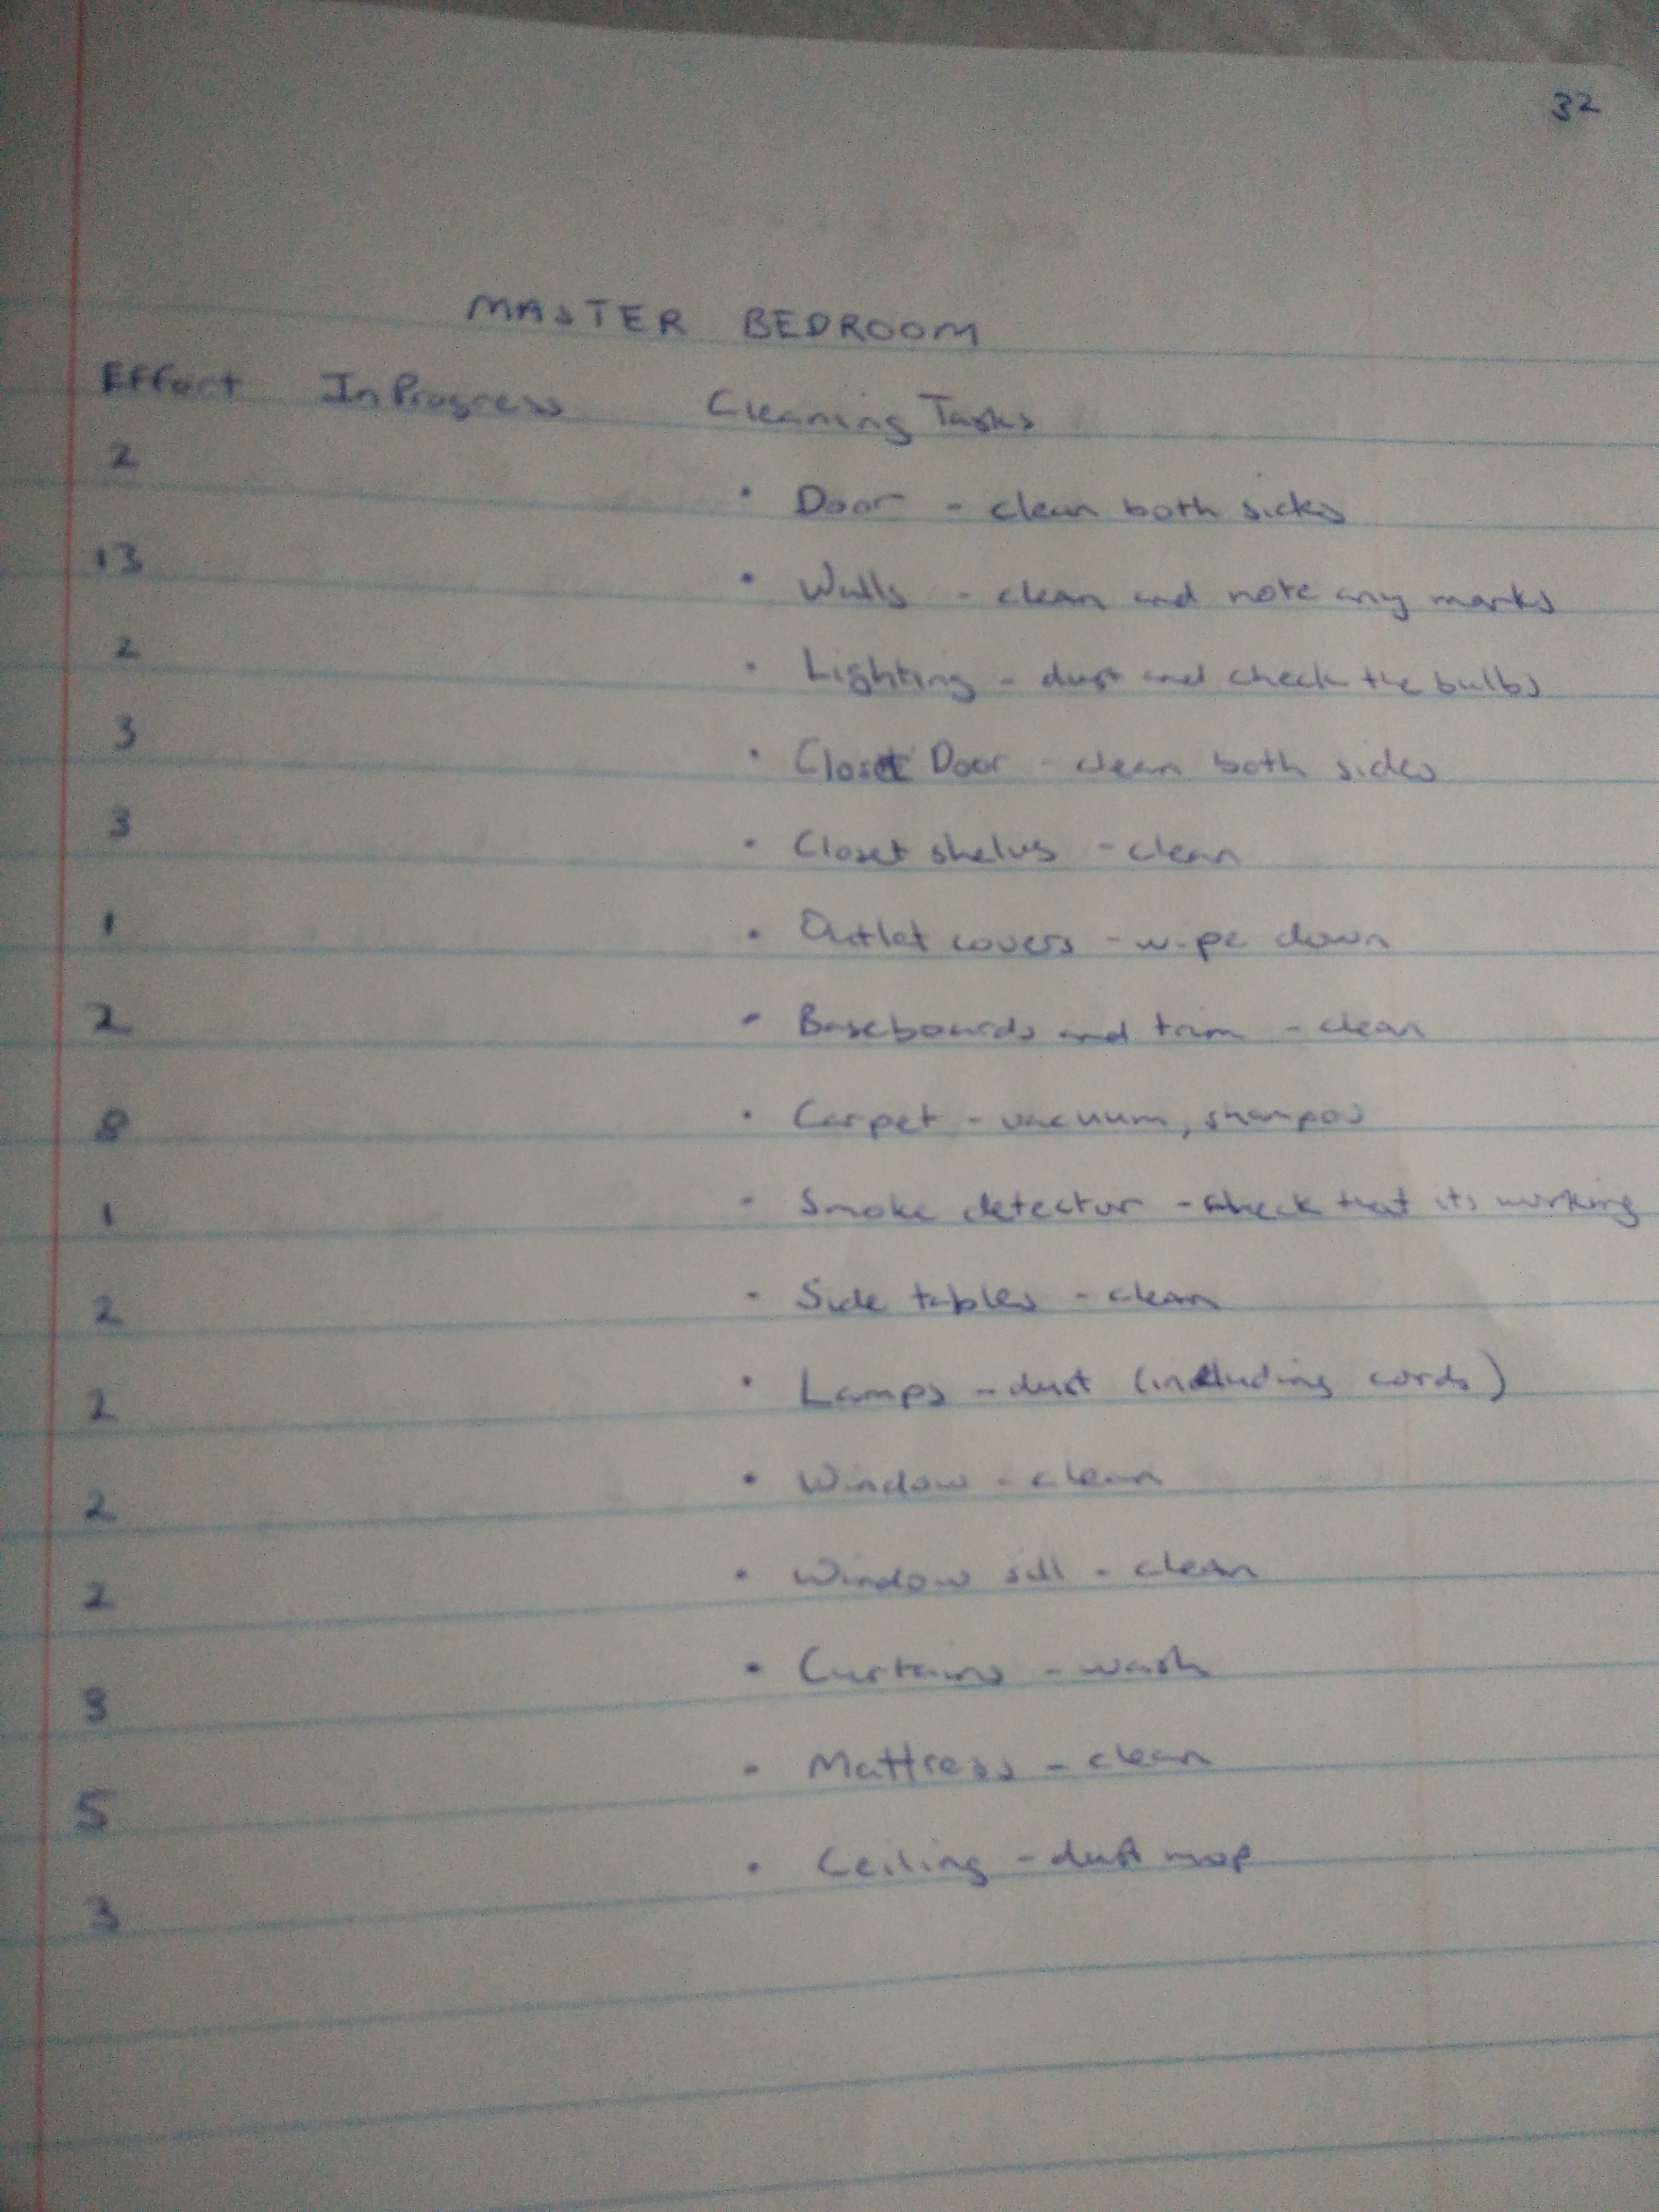 32
MASTER BEDROOM
Effort In Progress Cleaning Tasks
2 • Door - clean both sides
13 • Walls - clean and note any marks
2 • Lighting - dust and check the bulbs
3 • Closet Door - clean both sides
3 • Closet shelves - clean
1 • Outlet covers - wipe down
2 • Baseboards and trim - clean
8 • Carpet - vacuum, shampoo
1 • Smoke detector - check that its working
2 • Side tables - clean
2 • Lamps - dust (including cords)
2 • Window - clean
2 • Window sill - clean
3 • Curtains - wash
5 • Mattress - clean
3 • Ceiling - dust mop